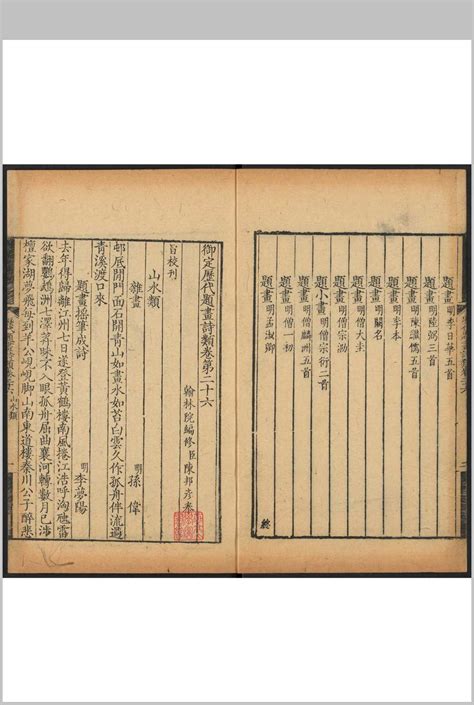 題畫明李日華五首
題畫明陸弼三首
題畫明陳繼儒五首
題畫明闕名
題畫明李本
題畫明僧大圭
題畫明僧宗泐
題小畫明僧宗衍二首
題畫明僧麟洲五首
題畫明僧一初
題畫明孟淑卿
終
御定歷代題畫詩類卷第二十六
翰林院編修臣陳邦彥奉
旨校刊
山水類
雜畫 明孫偉
邨居開門面石開青山如畫水如苔白雲久作孤舟伴流過
青溪渡口來
題畫揺筆成詩 明李夢陽
去年得歸離江州七日遂登黃鶴樓南風捲江浩呼洶雷
欲翻鸚鵡洲七澤不入眼孤舟屈曲襄河轉數月已涉
檀家湖夢飛每到羊公峴峴脚山南東道樓秦川公子醉悲